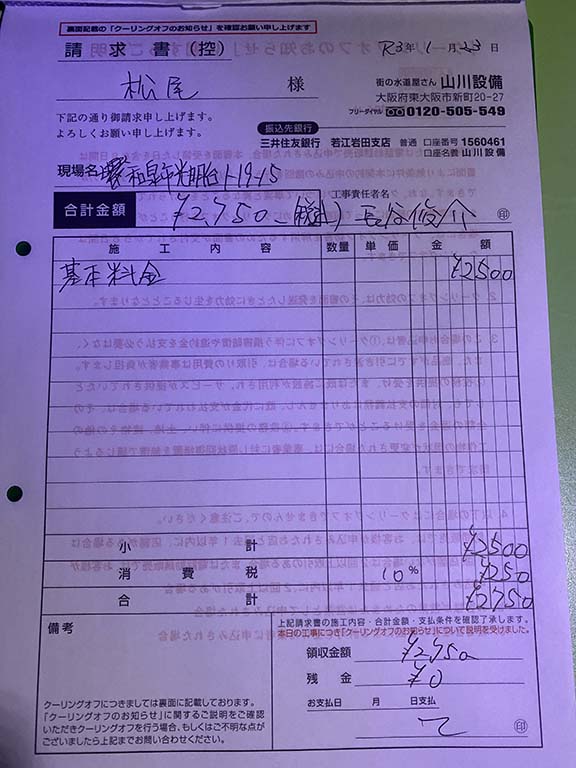 裏面記載の「クーリングオフのお知らせ」を確認お願い申し上げます
請求書(控)
R3年1月23日
松尾 様
街の水道屋さん 山川設備
大阪府東大阪市新町20-27
フリーダイヤル 0120-505-549
下記の通り御請求申し上げます。
よろしくお願い申し上げます。
振込先銀行
三井住友銀行 若江岩田支店 普通 口座番号 1560461
口座名義 山川設備
現場名 和泉市光明台1-19-15
工事責任者名
合計金額 ¥2,750-(税込) 長谷俊介 印
施工内容 数量 単価 金額
基本料金 ¥2500
小計 ¥2500
消費税 10% ¥250
合計 ¥2750
備考
上記請求書の施工内容・合計金額・支払条件を確認了承します。
本日の工事につき「クーリングオフのお知らせ」について説明を受けました。
領収金額 ¥2,750
残金 ¥0
お支払日 月 日支払
印
クーリングオフにつきましては裏面に記載しております。
「クーリングオフのお知らせ」に関するご説明をご確認
いただきクーリングオフを行う場合、もしくはご不明な点が
ございましたら上記までお問い合わせください。